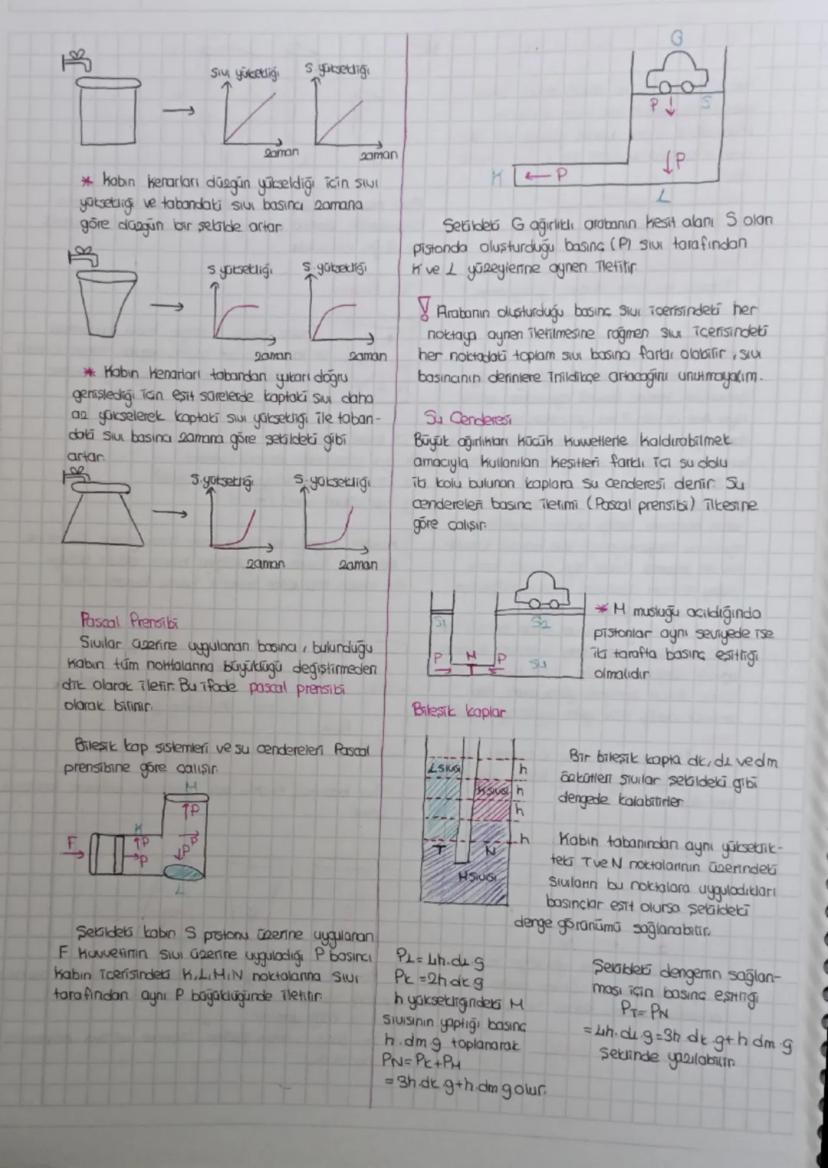 Sıvı yüksekliği
S yüksekliği
zaman
zaman
* Kabın kenarları düzgün yükseldiği için sıvı
yüksekliği ve tabandaki sıvı basıncı zamana
göre düzgün bir şekilde artar
S yüksekliği
S yüksekliği
zaman
zaman
* Kabın kenarları tabandan yukarı doğru
genişlediği için eşit sürelerde kaptaki sıvı daha
az yükselerek kaptaki sıvı yüksekliği ile taban-
daki sıvı basıncı zamana göre şekildeki gibi
artar
S.yüksekliği
S.yüksekliği
zaman
zaman
Pascal Prensibi
Sıvılar üzerine uygulanan basıncı, bulunduğu
kabın tüm noktalarına büyüklüğü değiştirmeden
dik olarak iletir. Bu ifade pascal prensibi
olarak bilinir.
Bileşik kap sistemleri ve su cendereleri Pascal
prensibine göre çalışır
M
P
F
K
P
P
P
P
L
Şekildeki kabın S pistonu üzerine uygulanan
F kuvvetinin sıvı üzerine uyguladığı P basıncı
kabın içerisindeki K,L,M,N noktalarına sıvı
tarafından aynı P büyüklüğünde iletilir
G
P
S
P
K
P
L
Şekildeki G ağırlıklı arabanın kesit alanı S olan
pistonda oluşturduğu basınç (P) sıvı tarafından
K ve L yüzeylerine aynen iletilir
! Arabanın oluşturduğu basınç sıvı içerisindeki her
noktaya aynen iletilmesine rağmen sıvı içerisindeki
her noktadaki toplam sıvı basıncı farklı olabilir, sıvı
basıncının derinlere inildikçe artacağını unutmayalım.
Su Cenderesi
Büyük ağırlıkları küçük kuvvetlerle kaldırabilmek
amacıyla kullanılan kesitleri farklı içi su dolu
iki kolu bulunan kaplara su cenderesi denir. Su
cendereleri basınç iletimi (Pascal prensibi) ilkesine
göre çalışır
S1
S2
P
M
P
su
* M musluğu açıldığında
pistonlar aynı seviyede ise
iki tarafta basınç eşitliği
olmalıdır
Bileşik kaplar
L SIVISI
K SIVISI
h
h
h
h
T
N
M SIVISI
Bir bileşik kapta dk, dL ve dm
özkütleli sıvılar şekildeki gibi
dengede kalabilirler
Kabın tabanından aynı yükseklik-
teki T ve N noktalarının üzerindeki
sıvıların bu noktalara uyguladıkları
basınçlar eşit olursa şekildeki
denge görünümü sağlanabilir.
PL = 4h.dL g
PK = 2h dk g
h yüksekliğindeki M
sıvısının yaptığı basınç
h.dm g toplanarak
PN = PK + PM
= 3h.dk g + h dm g olur.
Şekildeki dengenin sağlan-
ması için basınç eşitliği
PT = PN
= 4h.dL g = 3h dk g + h dm.g
şeklinde yazılabilir.